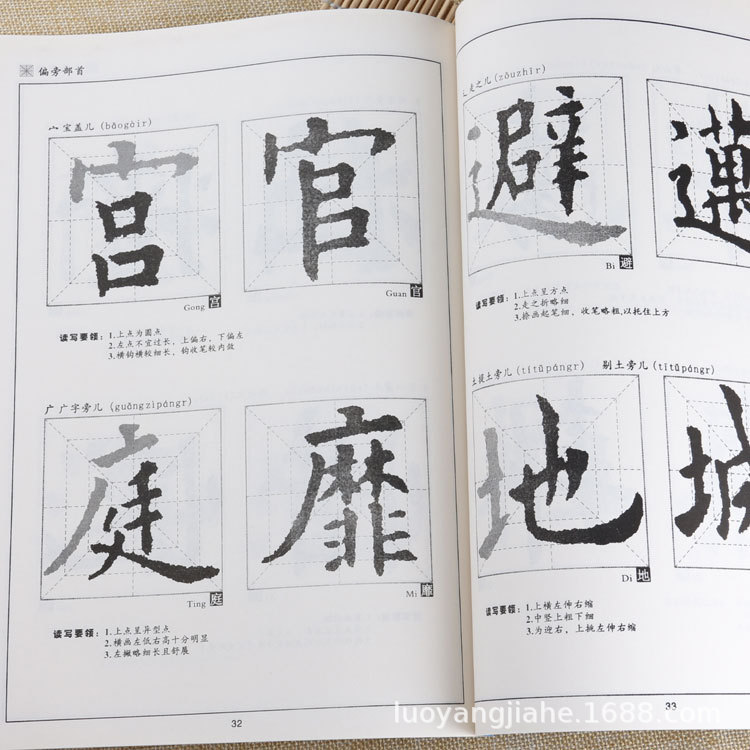 偏旁部首
宀 宝盖儿 (bǎogàir)
宫 官
Gong 宫 Guan 官
读写要领：1.上点为圆点
2.左点不宜过长，上偏右，下偏左
3.横钩横较细长，钩收笔较内敛
广 广字旁儿 (guǎngzìpángr)
庭 靡
Ting 庭 Mi 靡
读写要领：1.上点呈异型点
2.横画左低右高十分明显
3.左撇略细长且舒展
32
走之儿 (zǒuzhīr)
避
Bi 避
读写要领：1.上点呈方点
2.走之折略细
3.捺画起笔细，收笔略粗,以托住上方
土提土旁儿 (títǔpángr) 剔土旁儿 (tītǔpángr)
地
Di 地
读写要领：1.上横左伸右缩
2.中竖上粗下细
3.为迎右，上挑左伸右缩
33
luoyangjiahe.1688.com